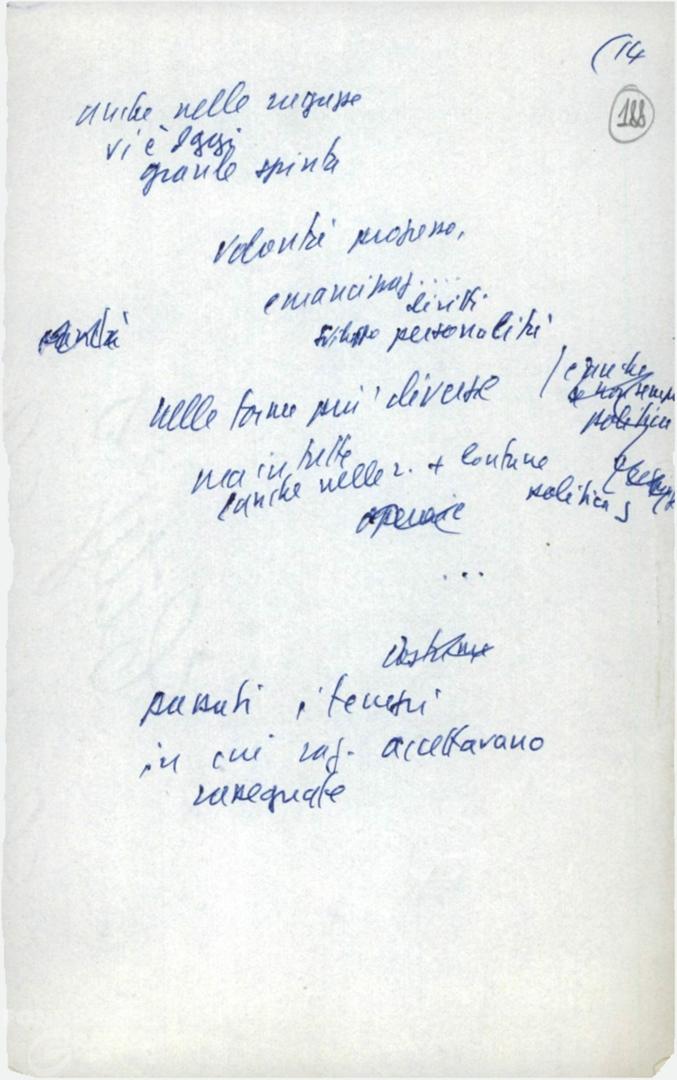 (14
188
anche nelle ragazze
vi è oggi
grande spinta
volontà progresso,
emancipaz....
diritti
sviluppo personalità
nelle forme più diverse
(e anche
non sempre
politica
ma in tutte
(anche nelle r. + lontane
politica)
operaie
...
passati i tempi
in cui rag. accettavano
rassegnate